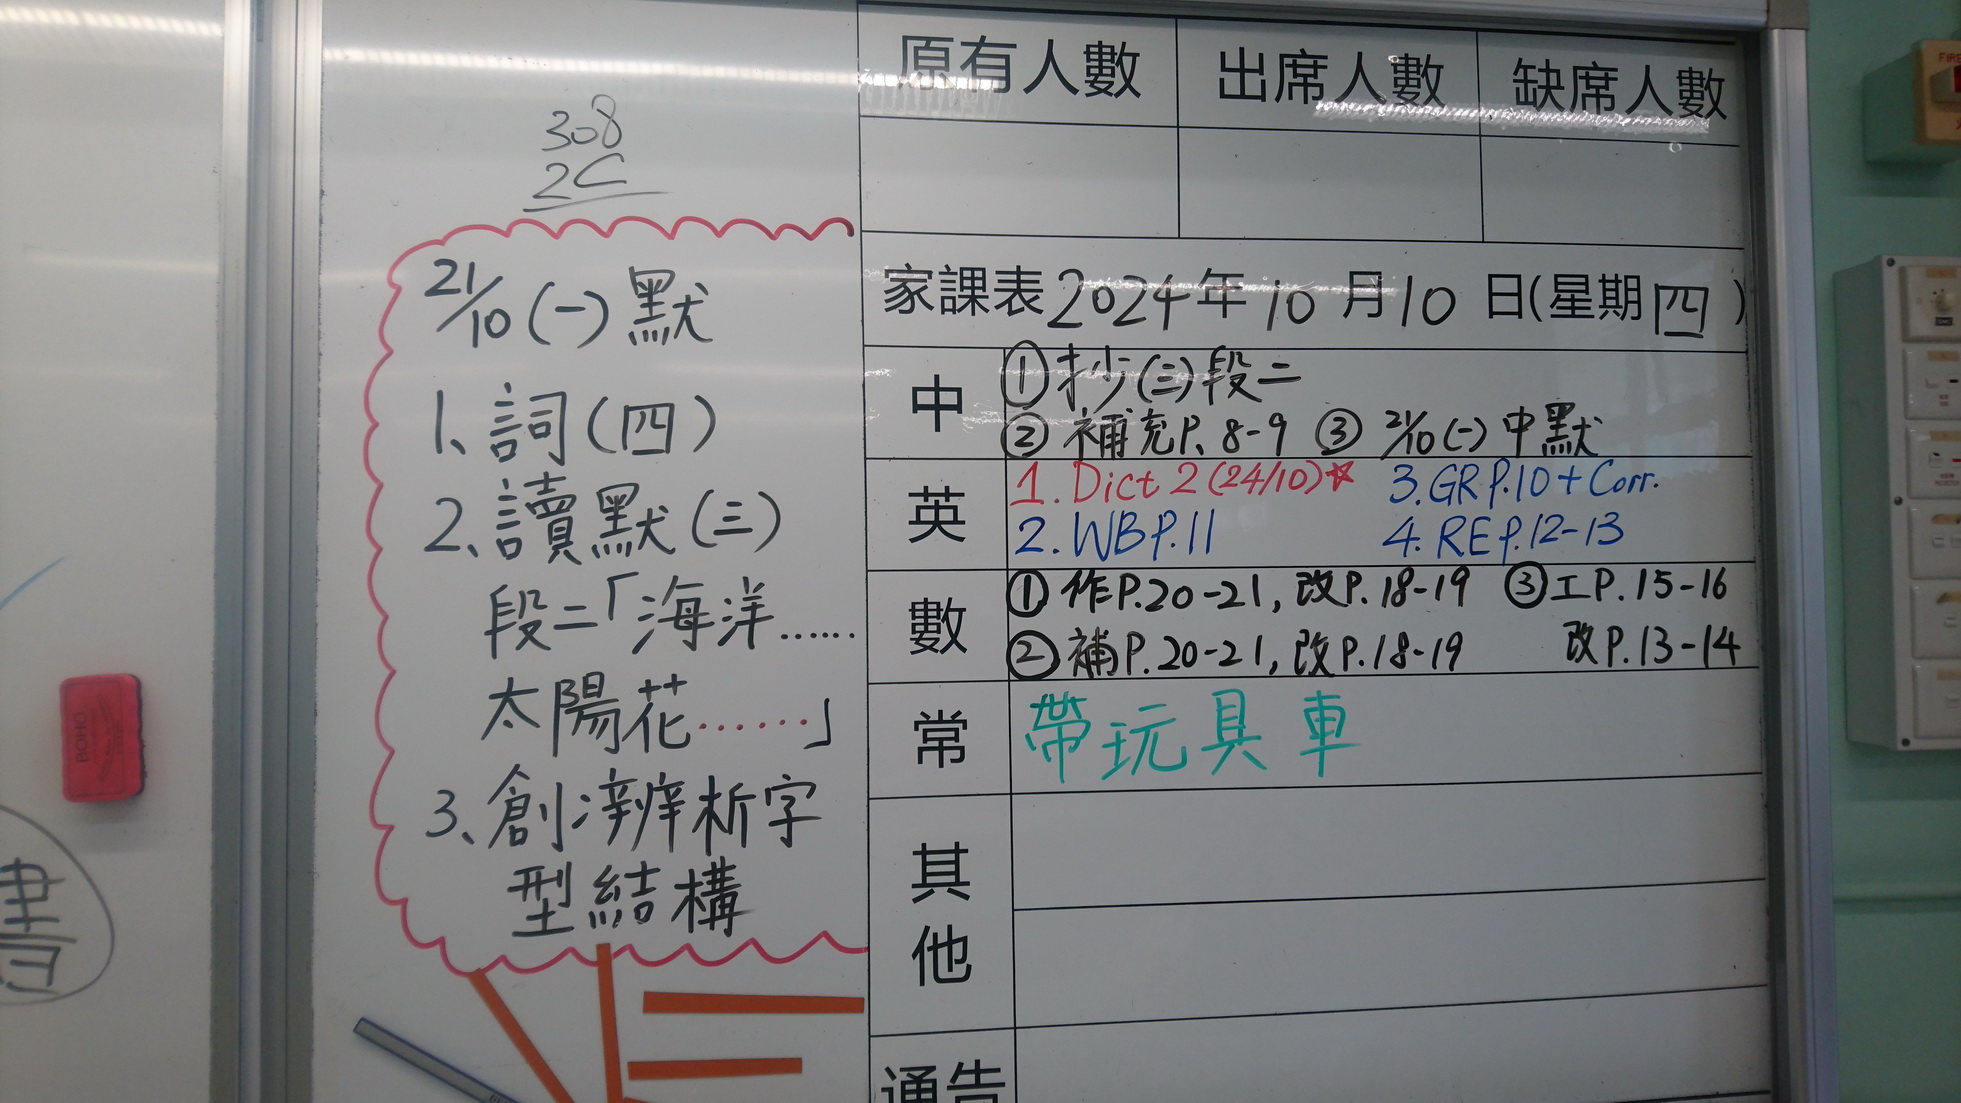 308
2C
21/10(一)默
1、詞(四)
2、讀默(三)
段二「海洋……
太陽花……」
3、創:辨析字
型結構
原有人數 出席人數 缺席人數
家課表2024年10月10日(星期四)
中
①抄(三)段二
②補充P.8-9 ③21/10(一)中默
英
1.Dict 2(24/10)☆ 3.GR P.10+Corr.
2.WB P.11 4.RE p.12-13
數
①作P.20-21,改P.18-19 ③工P.15-16
②補P.20-21,改P.18-19 改P.13-14
常
帶玩具車
其他
通告
BOHO
FIRE